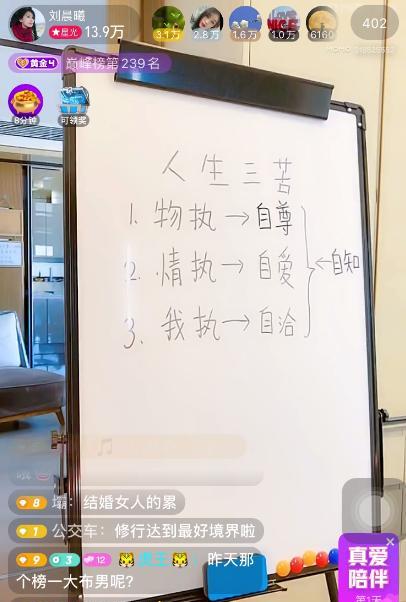 刘晨曦
星光 13.9万
3.1万 2.8万 1.6万 1.0万 6160
402
黄金4 巅峰榜第239名
8分钟 可领奖
人生三苦
1. 物执→自尊
2. 情执→自爱
3. 我执→自洽
←自知
8 结婚女人的累
1 公交车：修行达到最好境界啦
9 3 12 虎王 昨天那
个榜一大布男呢?
真爱
陪伴
第1天